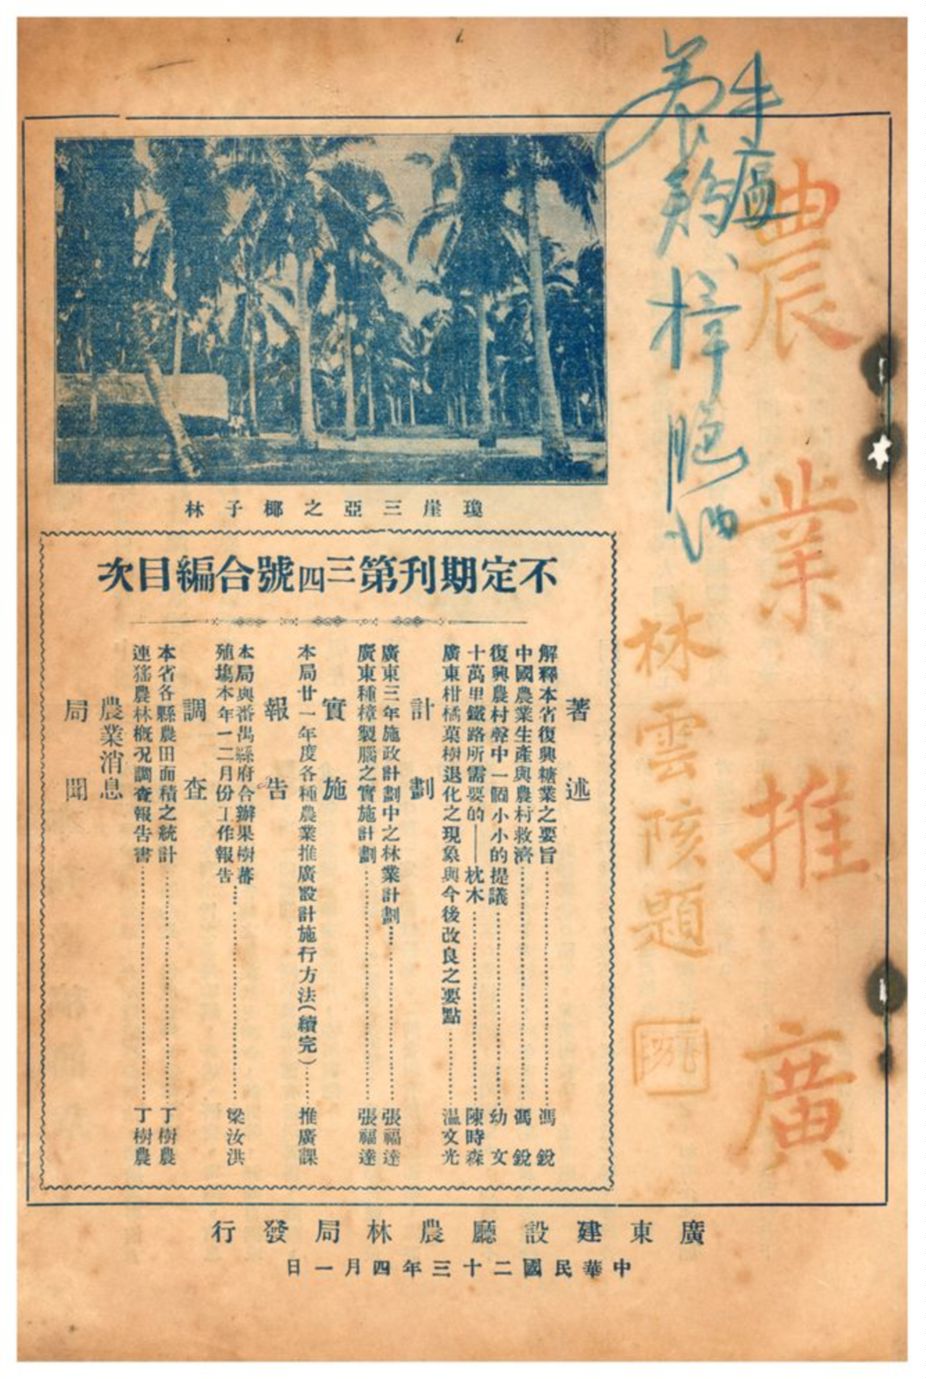 農業推廣
林雲陔題
瓊崖三亞之椰子林
不定期刊第三四號合編目次
著述
解釋本省復興糖業之要旨………馮銳
中國農業生產與農村救濟………馮銳
復興農村聲中一個小小的提議………幼文
十萬里鐵路所需要的——枕木………陳時森
廣東柑橘菓樹退化之現象與今後改良之要點………溫文光
計劃
廣東三年施政計劃中之林業計劃………張福達
廣東種樟製腦之實施計劃………張福達
實施
本局廿一年度各種農業推廣設計施行方法(續完)………推廣課
報告
本局與番禺縣府合辦果樹蕃
殖塲本年一二月份工作報告………梁汝洪
調查
本省各縣農田面積之統計………丁樹農
連猺農林概況調查報告書………丁樹農
農業消息
局聞
廣東建設廳農林局發行
中華民國二十三年四月一日